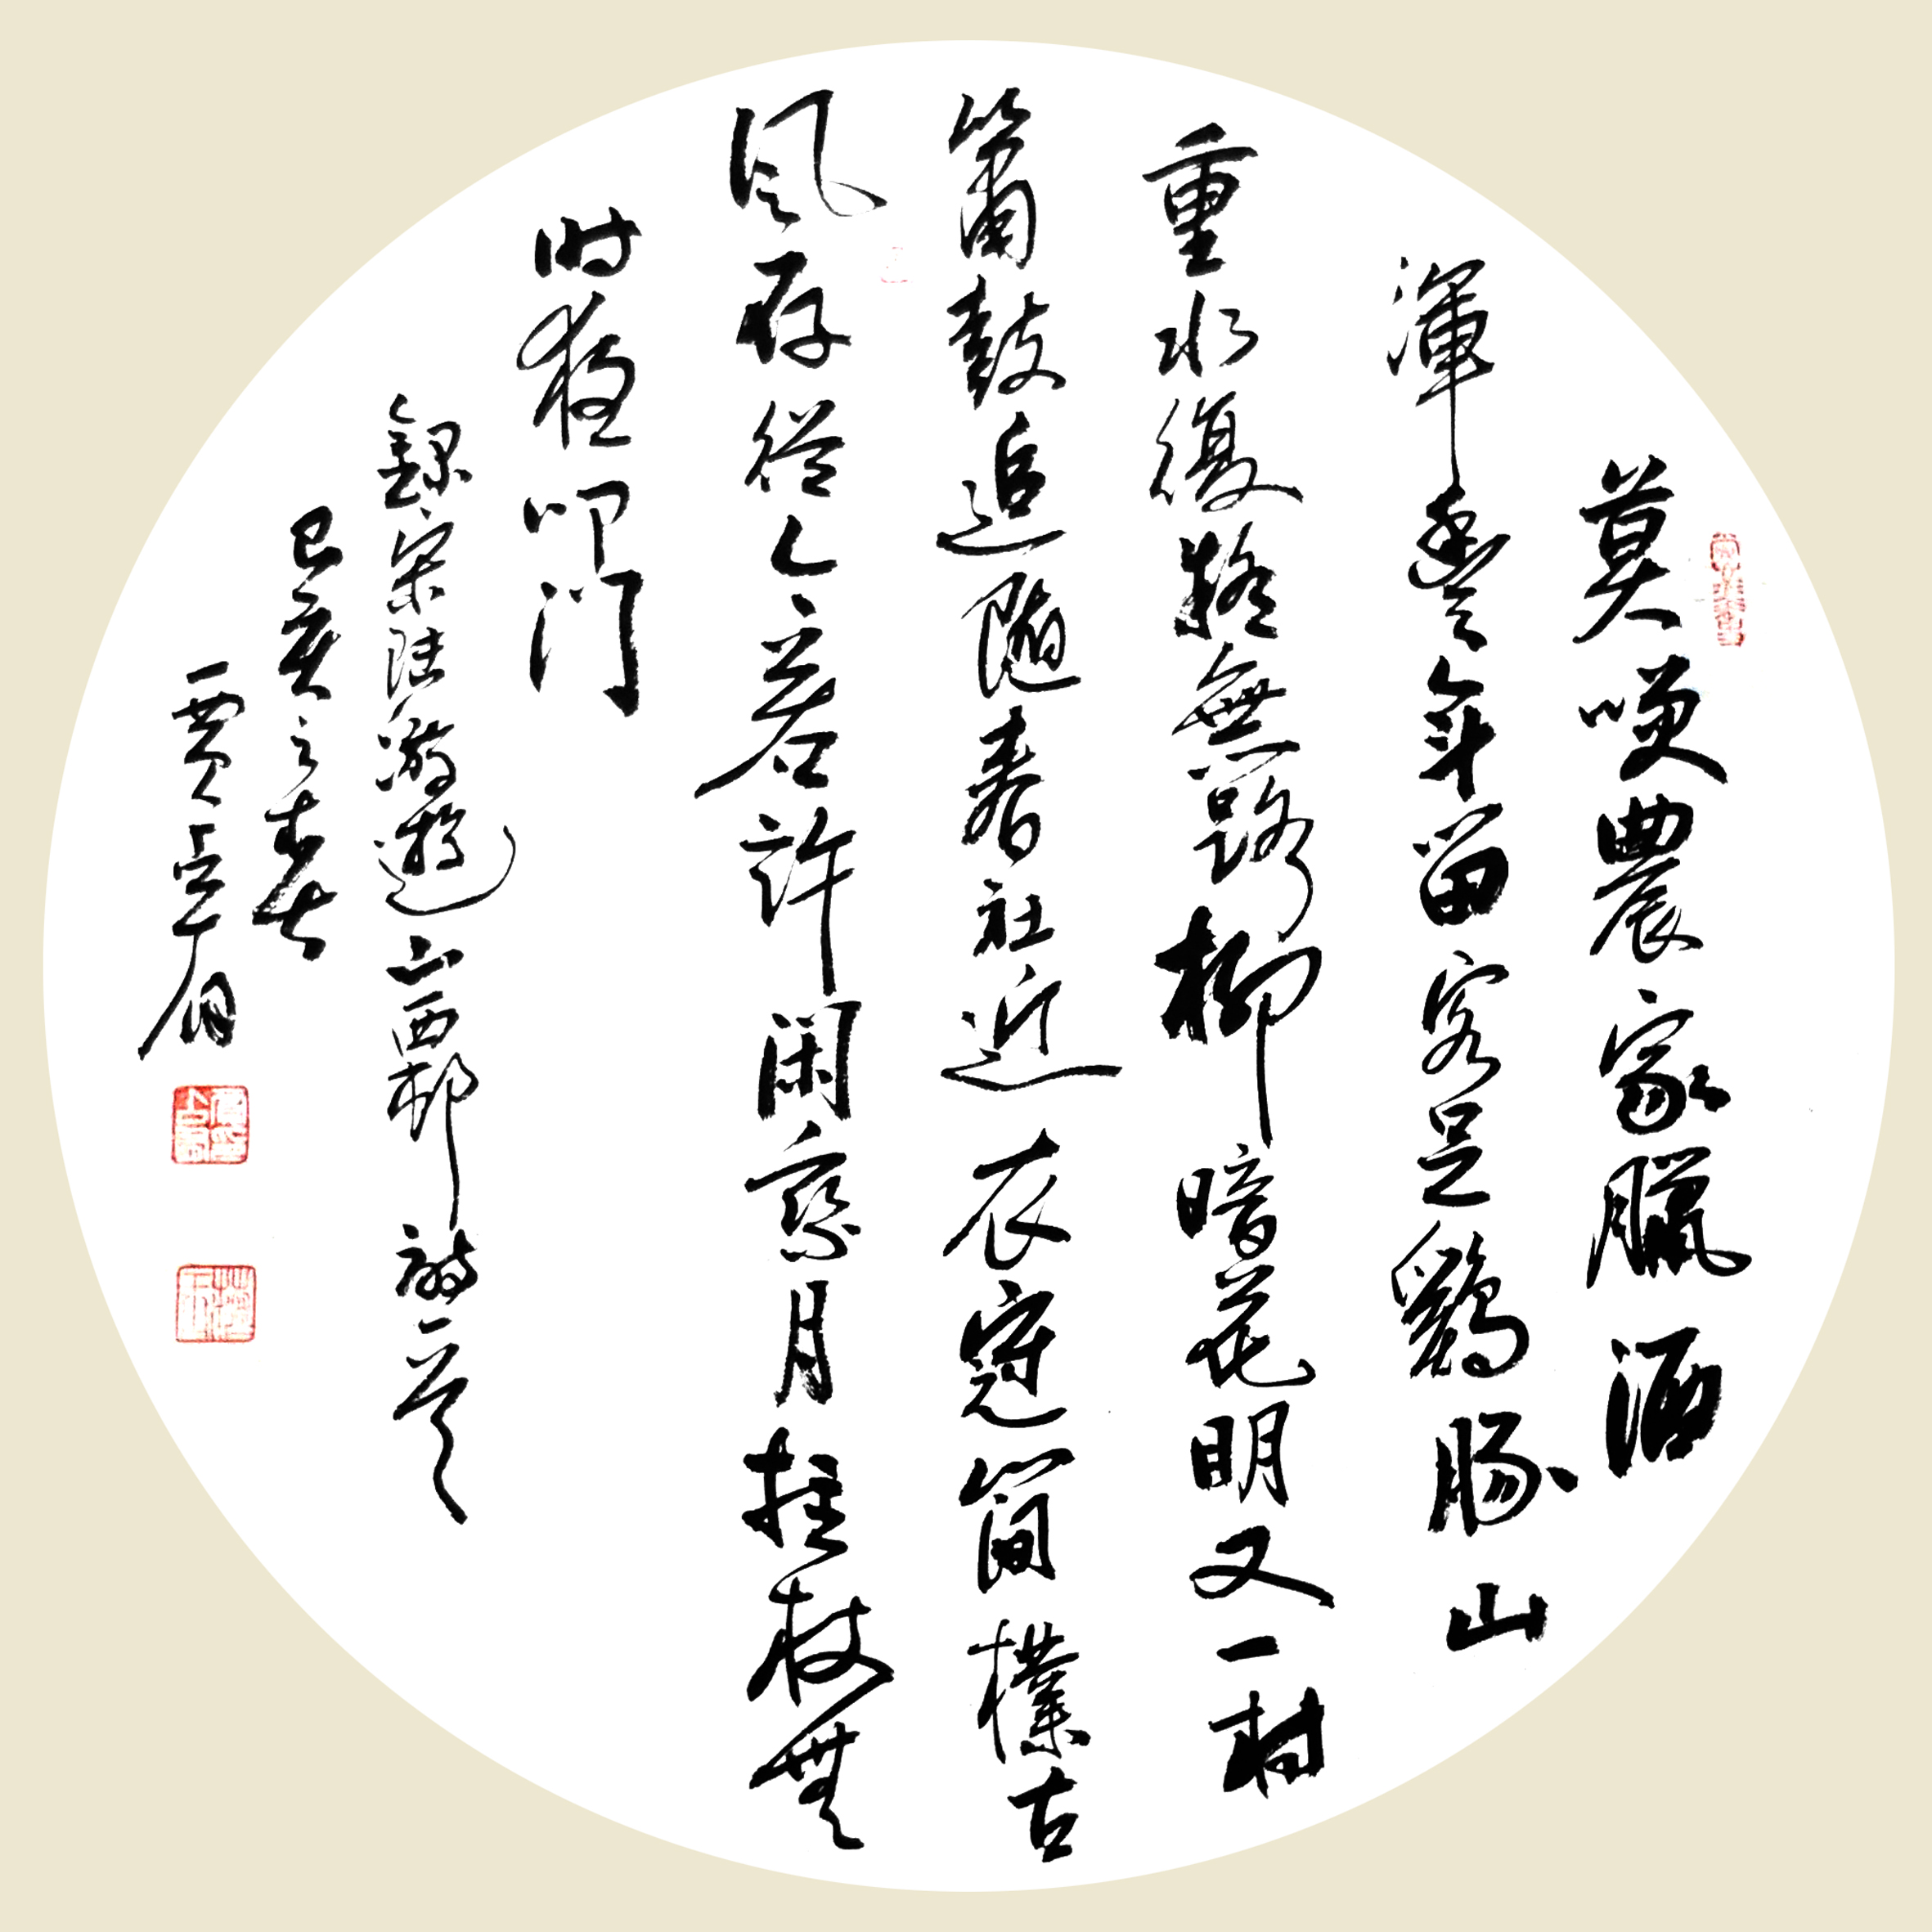 莫咲農家臘酒
渾豐年留客足鷄豚山
重水復疑無路柳暗花明又一村
簫鼓追隨春社近衣冠簡樸古
风存從今若許闲乘月拄杖無
时夜叩门
録宋陸游遊山西邨詩一首
己亥之春